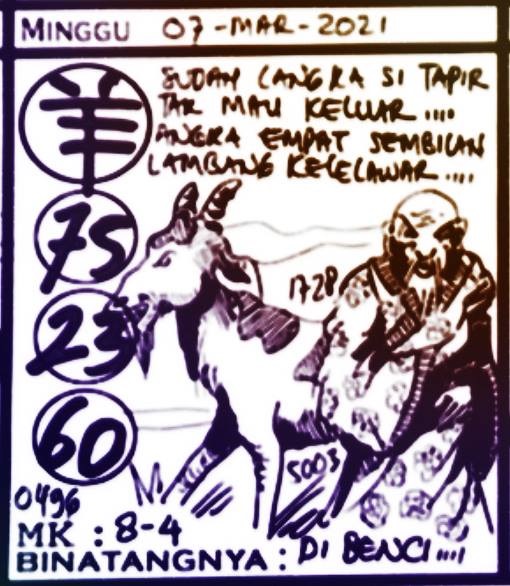 MINGGU 07-MAR-2021
SUDAH LANGKA SI TAPIR
TAK MAU KELUAR....
ANGKA EMPAT SEMBILAN
LAMBANG KELELAWAR....
羊
75
23
60
1728
5003
0496
MK : 8-4
BINATANGNYA : DI BENCI....